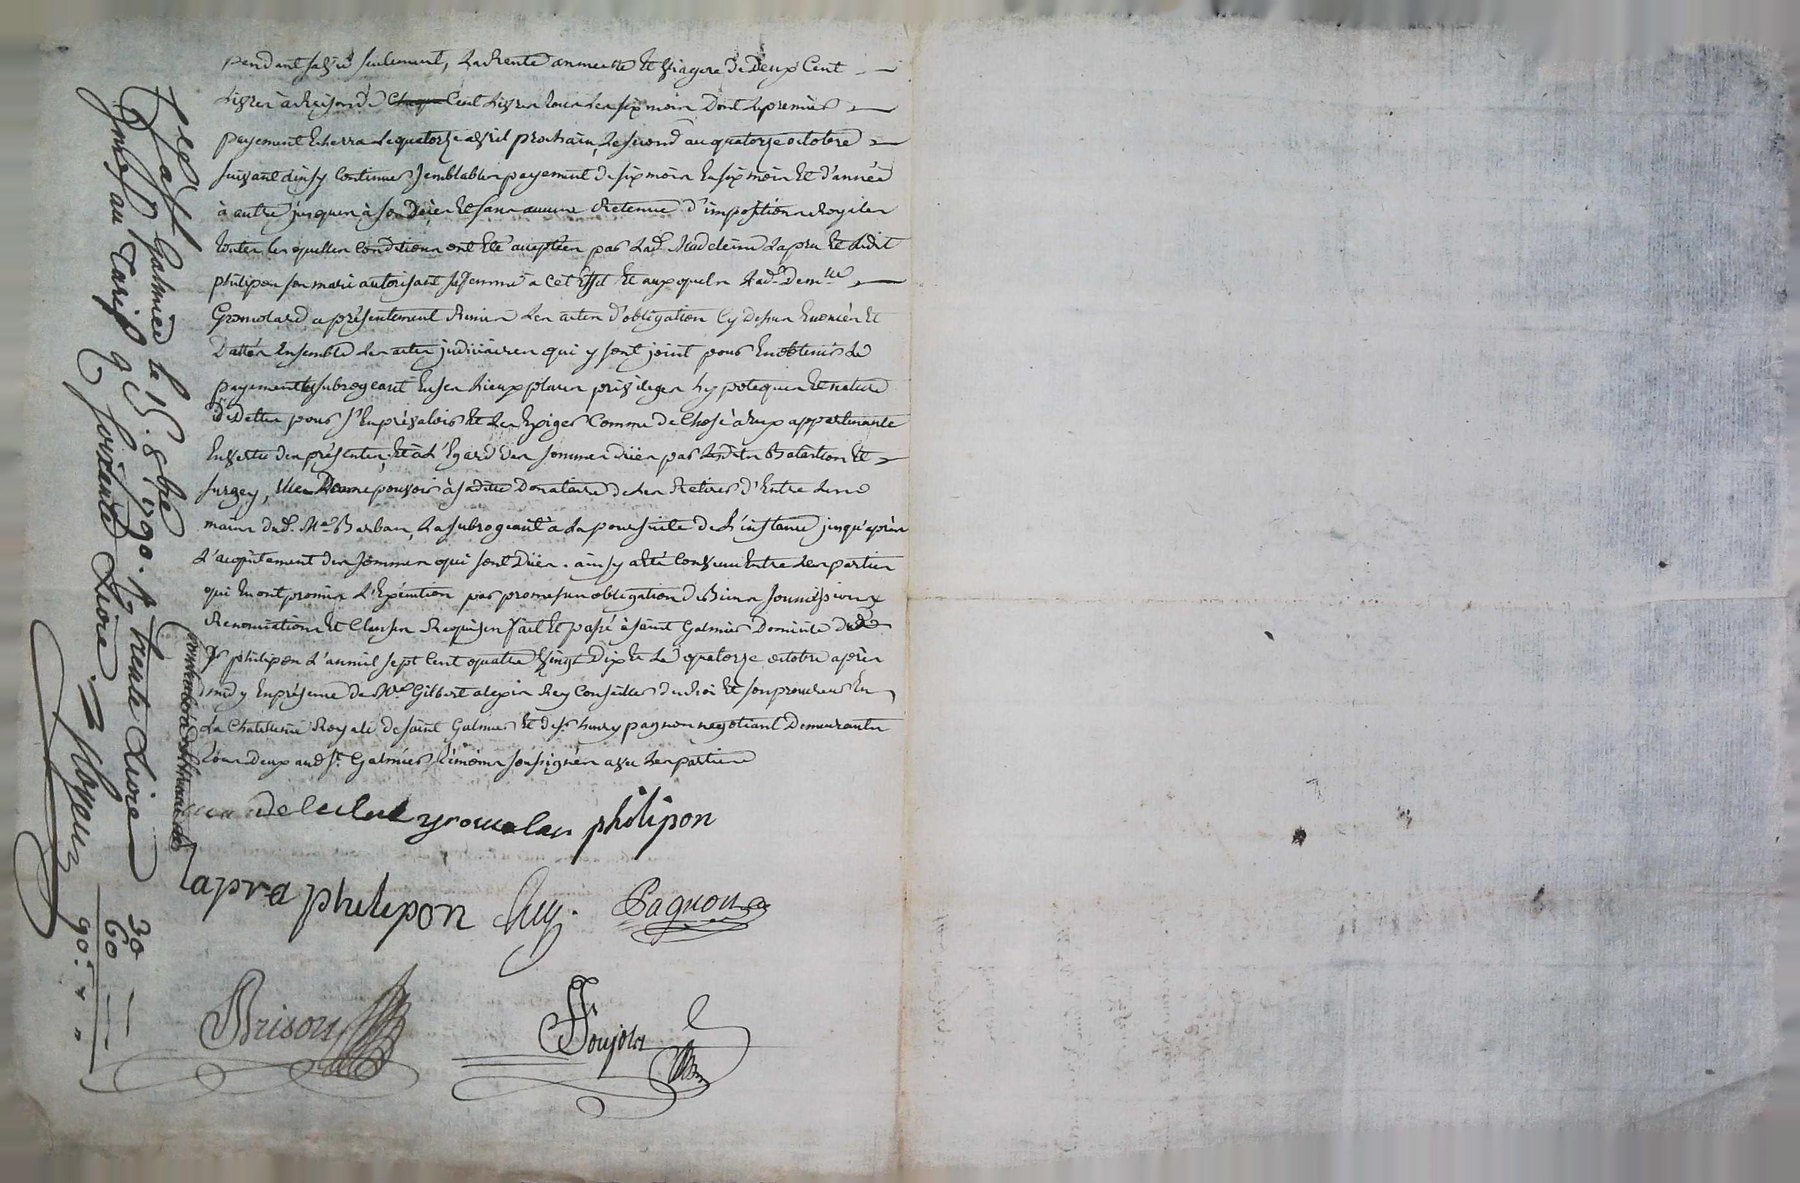 pendant sa vie seulement, La Rente annuelle et viagere de Deux Cent
Livres à Raison de Cent Livres tous Les six mois Dont Le premier
payement Echerra Le quatorze avril prochain, Le second au quatorze octobre
suivant ainsy Continuer semblables payement de six mois En six mois Et d'année
à autre jusques à son Déces Et sans aucune Retenue d'imposition Royales
toutes lesquelles Conditions ont Eté acceptées par Lad. Madeleine Lapra Et Ledit
philipon son mari autorisant sa femme à Cet Effet Et auxquels Lad. Dem.lle
Gromolard a présentement Remis Les actes d'obligation Cy Dessus Enoncés Et
Dattés Ensemble Les actes judiciaires qui y sont joint pour En obtenir Le
payement Les subrogeant En ses Lieux places privileges hypoteques Et nature
De Dettes pour s'En prévaloir Et Les Exiger Comme de Chose à Eux appartenante
En vertu des présentes, Et à L'Egard des sommes dües par Lesdits Et
Elle Donne pouvoir à sa ditte Donataire de Les Retirer d'Entre Les
mains dud. Me Barban, La subrogeant à La poursuite de L'instance jusqu'après
L'acquitement des sommes qui sont Dües. ainsy a Eté Convenu Entre Les parties
qui En ont promis L'Exécution par promesses obligation de Biens soumissions
Renonciations Et Clauses Requises fait Et passé à saint Galmier Domicile dud.
Sr philipon L'an mil sept Cent quatre vingt Dix Et Le quatorze octobre après
midy En présence de Me Gilbert alexis Rey Conseiller du Roi Et son procureur En
La Chatellenie Royale de saint Galmier Et de Sr. pagnon negotiant Demeurants
tous Deux aud St. Galmier témoins soussignés avec Les parties
philipon
lapra philipon Rey. Pagnon
Brison
Galmier le 15. 8bre 1790. trente Livre
au Tarif soixante Livre.
30
60
90.